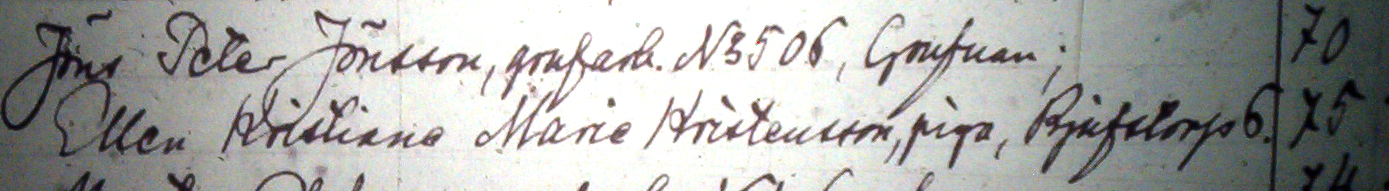 Jöns Peter Jönsson, grufarb. N 3506, Grufvan; 70
Ellen Kristiane Marie Kristensson, piga, Bjufstorp 6. 75
74